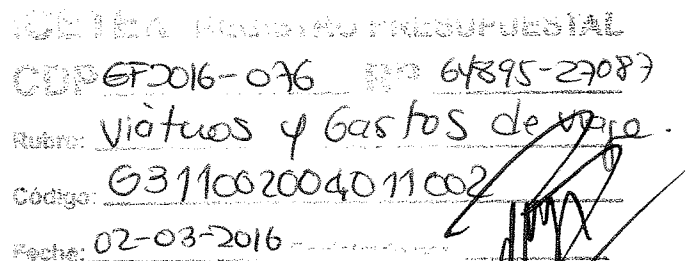 ICETEX REGISTRO PRESUPUESTAL
CDP GF2016-076 RP 64895-27087
Rubro: Viáticos y Gastos de viaje.
Código: G311002004011002
Fecha: 02-03-2016